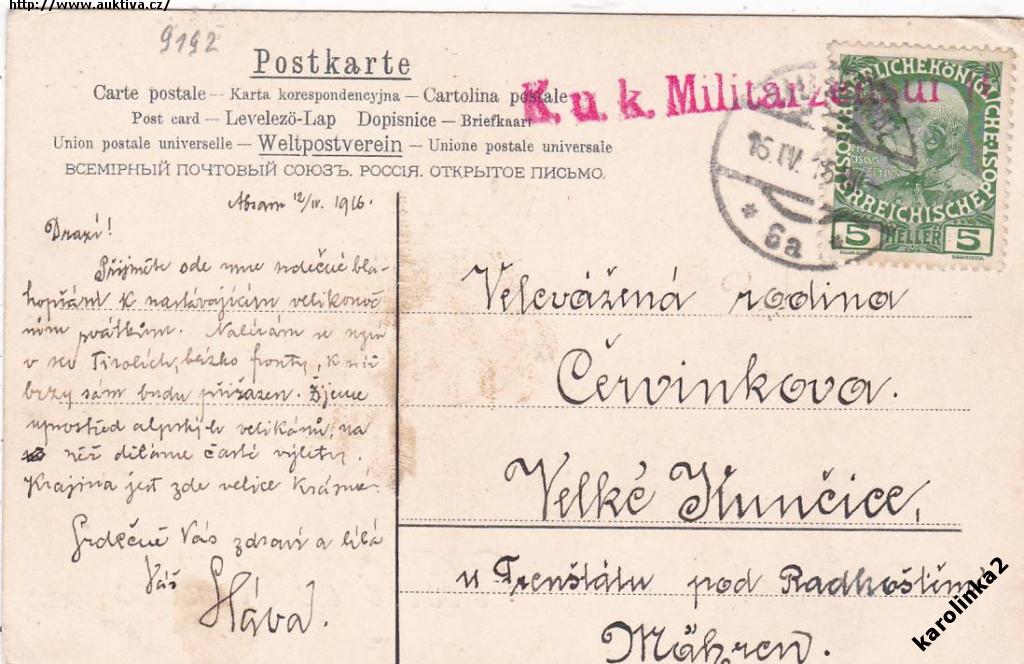 http://www.auktiva.cz/
9192
Postkarte
Carte postale -- Karta korespondencyjna -- Cartolina postale
Post card -- Levelező-Lap Dopisnice -- Briefkaart
Union postale universelle -- Weltpostverein -- Unione postale universale
ВСЕМІРНЫЙ ПОЧТОВЫЙ СОЮЗЪ. РОССІЯ. ОТКРЫТОЕ ПИСЬМО.
K. u. k. Militärzensur
16.IV.16
* 6a *
5 HELLER 5
Absam 12/IV. 1916.
Drazí!
Přijměte ode mne srdečné bla-
hopřání k nastávajícím velikonoč
ním svátkům. Nalézám se nyní
v Tirolích, blízko fronty, k níž
brzy sám budu přiřazen. Žijeme
uprostřed alpských velikánů, na
něž děláme časté výlety.
Krajina jest zde velice krásná.
Srdečně Vás zdraví a líbá
Váš
Sláva.
Velevážená rodina
Červinkova.
Velké Kunčice,
u Frenštátu pod Radhoštěm
Mähren.
karolinka2